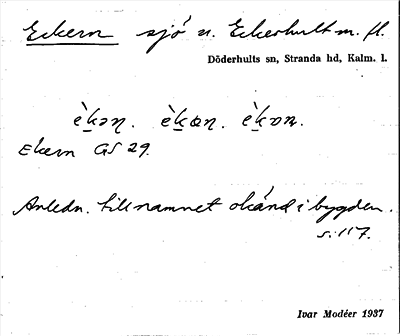 Eckern sjö n. Eckerhult m. fl.
Döderhults sn, Stranda hd, Kalm. l.
èkəɳ. èkaɳ. èkɒɳ.
Ekern GS 29.
Anledn. till namnet okänd i bygden.
s. 117.
Ivar Modéer 1937